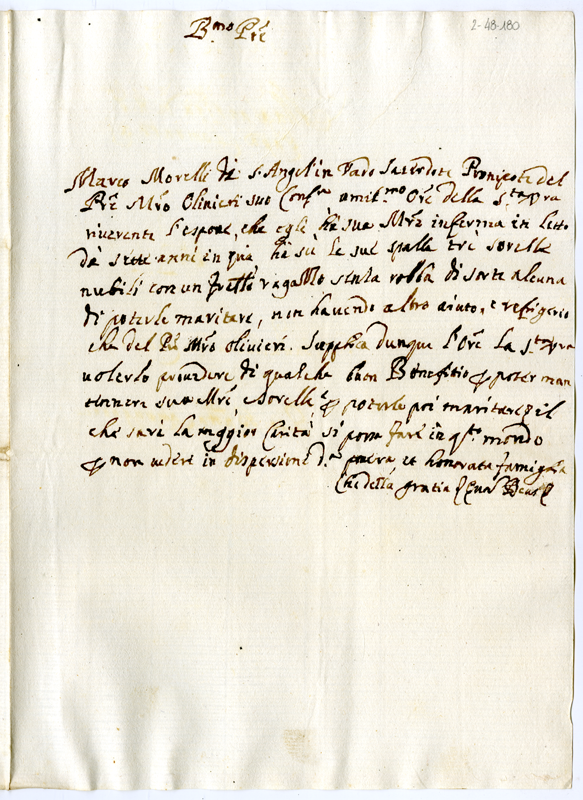 B.mo P.re
2-48-180
Marco Morelli di S. Angel' in Vado Sacerdote Pronipote del
P.re M.ro Olivieri suo Conf.re umil.mo Ore della S.tà V.ra
riverente l'espone, che egli hà sua M.re inferma in letto
da sette anni in quà hà sù le sue spalle tre sorelle
nubili con un fratello ragazzo senza robba di sorte alcuna
di poterle maritare, non havendo altro aiuto, e refrigerio
che del P.re M.ro Olivieri. Supplica dunque l'Ore la S.tà V.ra
volerlo provedere di qualche buon Benefitio per poter man
tenere sua M.re, e sorelle, e per poterle poi maritare, il
che sarà la maggior Carità si possa fare in q.to mondo
per non vedere in dispersione d.a povera, et honorata famiglia
Che della gratia